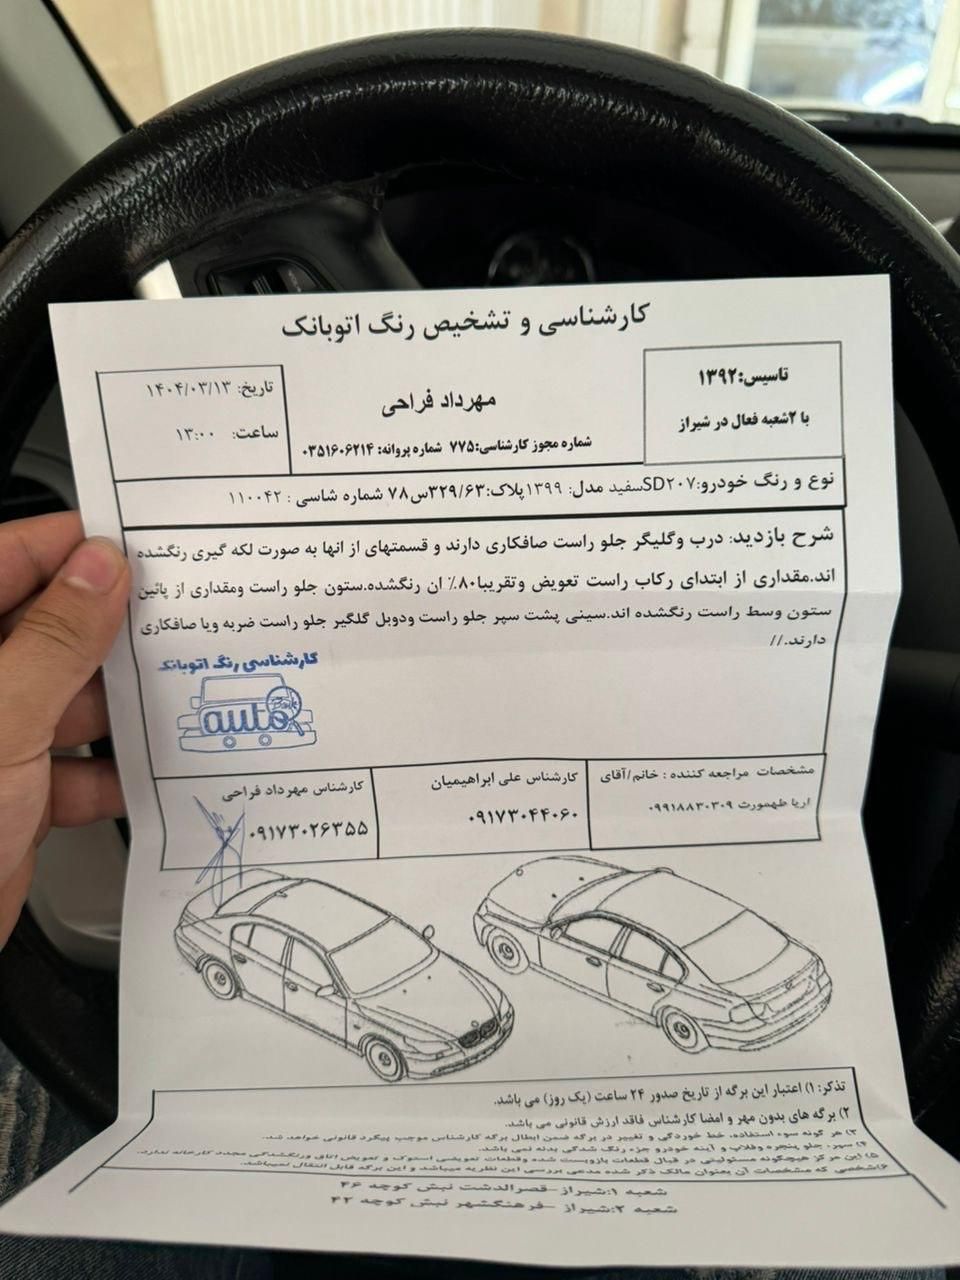 کارشناسی و تشخیص رنگ اتوبانک
تاسیس:۱۳۹۲
با ۲شعبه فعال در شیراز
مهرداد فراحی
شماره مجوز کارشناسی:۷۷۵ شماره پروانه: ۰۳۵۱۶۰۶۲۱۴
تاریخ: ۱۴۰۴/۰۳/۱۳
ساعت: ۱۳:۰۰
نوع و رنگ خودرو:SD۲۰۷سفید مدل: ۱۳۹۹پلاک:۳۲۹/۶۳س۷۸ شماره شاسی : ۱۱۰۰۴۲
شرح بازدید: درب وگلیگر جلو راست صافکاری دارند و قسمتهای از انها به صورت لکه گیری رنگشده
اند.مقداری از ابتدای رکاب راست تعویض وتقریبا۸۰٪ ان رنگشده.ستون جلو راست ومقداری از پائین
ستون وسط راست رنگشده اند.سینی پشت سپر جلو راست ودوبل گلگیر جلو راست ضربه ویا صافکاری
دارند.//
کارشناسی رنگ اتوبانک
auto
Bank
مشخصات مراجعه کننده : خانم/آقای
اریا طهمورث ۰۹۹۱۸۸۳۰۳۰۹
کارشناس علی ابراهیمیان
۰۹۱۷۳۰۴۴۰۶۰
کارشناس مهرداد فراحی
۰۹۱۷۳۰۲۶۳۵۵
تذکر: ۱) اعتبار این برگه از تاریخ صدور ۲۴ ساعت (یک روز) می باشد.
۲) برگه های بدون مهر و امضا کارشناس فاقد ارزش قانونی می باشد.
۳) هر گونه سوء استفاده، خط خوردگی و تغییر در برگه ضمن ابطال برگه کارشناس موجب پیگرد قانونی خواهد شد.
۴) سپر، جلو پنجره وقلاب و آینه خودرو جزء رنگ شدگی بدنه نمی باشد.
۵) این مرکز هیچگونه مسئولیتی در قبال قطعات بازوبست شده وقطعات تعویضی استوک و تعویض اتاق ورنگشدگی مجدد کارخانه ندارد.
۶)شخصی که مشخصات آن بعنوان مالک ذکر شده مدعی بررسی این نظریه میباشد و این برگه قابل انتقال نمیباشد.
شعبه ۱:شیراز -قصرالدشت نبش کوچه ۴۶
شعبه ۲:شیراز -فرهنگشهر نبش کوچه ۴۲